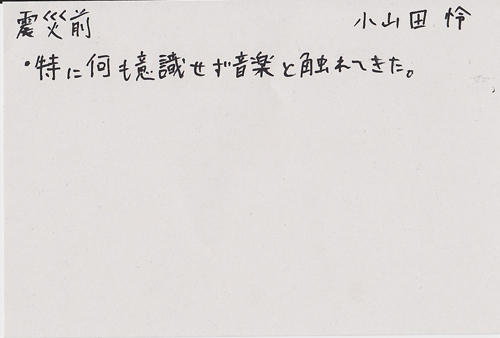 震災前 小山田 怜
・特に何も意識せず音楽と触れてきた。